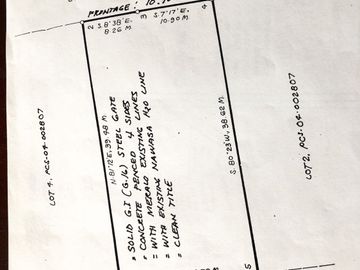 FRONTAGE: 10.
2
S.8°38'E.
8.26 M.
3
S.7°17'E.
10.90 M.
4
LOT 4, PCS-04-002807
N.81°12'E. 39.48 M.
" SOLID G.I (G.16) STEEL GATE
" CONCRETE FENCED 4 SIDES
" WITH MERALCO EXISTING LINES
" WITH EXISTING NAWASA H2O LINE
" CLEAN TITLE
S. 80°23'W. 38.62 M.
LOT 2, PCS-04-002807
5